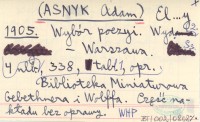 (ASNYK Adam) El...y
1905. Wybór poezyi.
Warszawa.
338, tabl., opr.
Biblioteka Miniaturowa
Gebethnera i Wolffa. Część na-
kładu bez oprawy. WHP